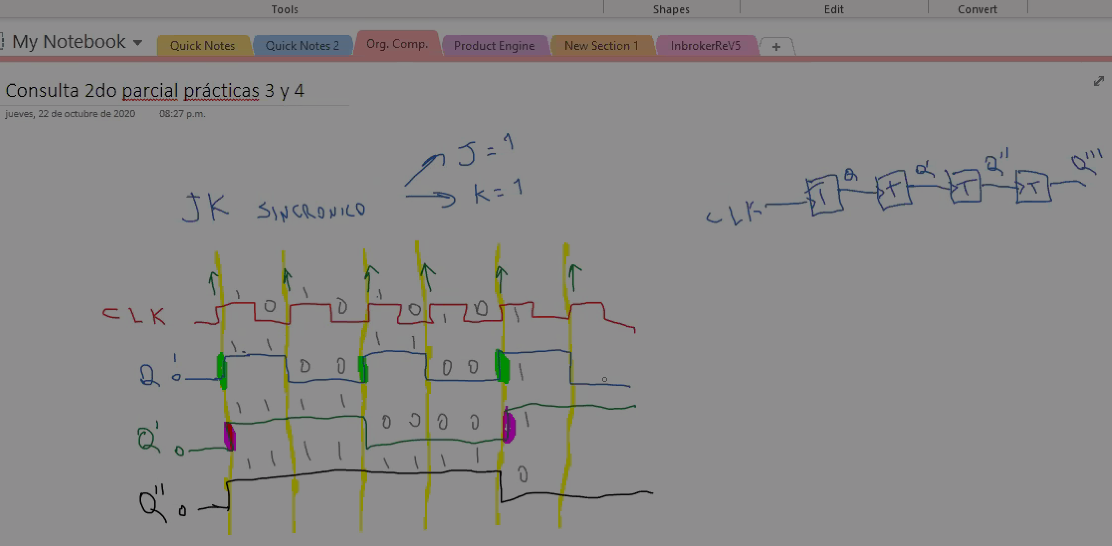 Tools Shapes Edit Convert
My Notebook Quick Notes Quick Notes 2 Org. Comp. Product Engine New Section 1 InbrokerReV5 +
Consulta 2do parcial prácticas 3 y 4
jueves, 22 de octubre de 2020 08:27 p.m.
J = 1
JK SINCRONICO
K = 1
Q Q' Q'' Q'''
CLK T T T T
1 0 1 0 1 0 1 0 1
CLK
1 1 0 0 1 1 0 0 1 0
Q' 0
1 1 1 1 0 0 0 0 1
Q' 0
1 1 1 1 1 1 1 1 0
Q'' 0